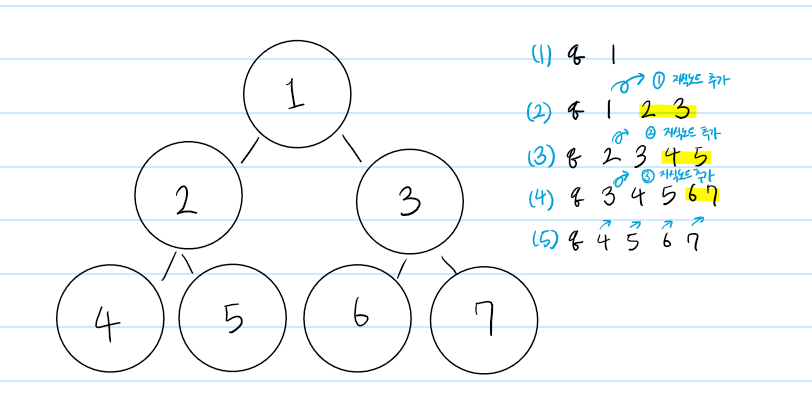 1
2
3
4
5
6
7
(1) q 1
① 자식노드 추가
(2) q 1 2 3
② 자식노드 추가
(3) q 2 3 4 5
③ 자식노드 추가
(4) q 3 4 5 6 7
(5) q 4 5 6 7